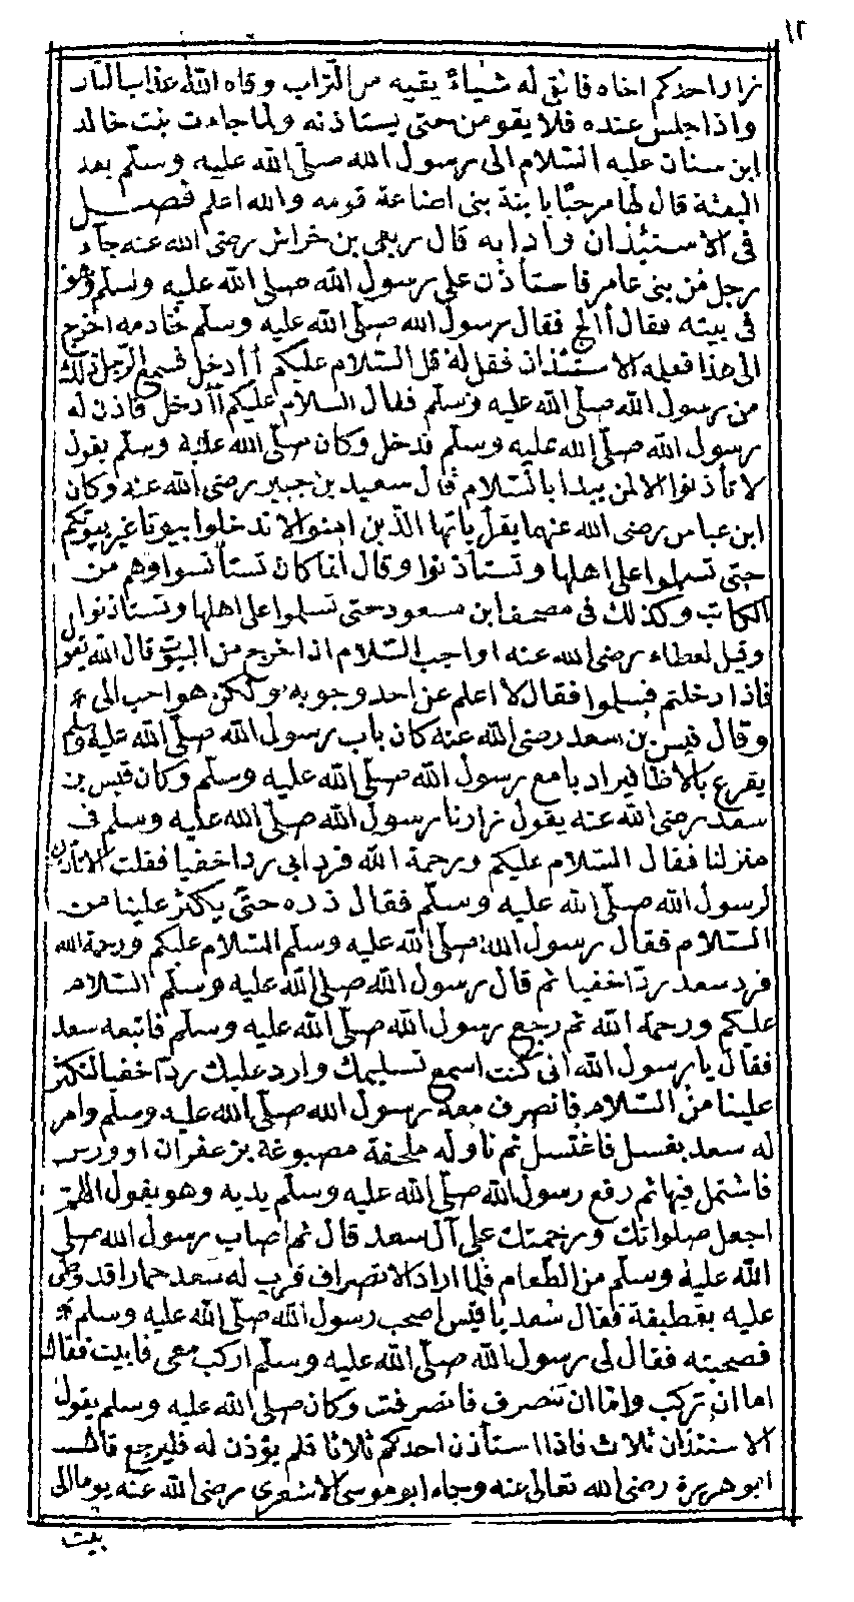 ١٢
زار احدكم اخاه فالقى له شياءً يقيه من التراب وقاه الله عذاب النار
واذا جلس عنده فلا يقومن حتى يستاذنه ولما جاءت بنت خالد
ابن سنان عليه السلام الى رسول الله صلى الله عليه وسلم بعد
البعثة قال لها مرحبًا بابنة بنى اضاعة قومه والله اعلم فصل
فى الاستئذان وادابه قال ربعى بن خراش رضى الله عنه جاء
رجل من بنى عامر فاستأذن على رسول الله صلى الله عليه وسلم وهو
فى بيته فقال أألج فقال رسول الله صلى الله عليه وسلم خادمه اخرج
الى هذا فعلمه الاستئذان فقل له قل السلام عليكم أأدخل فسمع الرجل ذلك
من رسول الله صلى الله عليه وسلم فقال السلام عليكم أأدخل فاذن له
رسول الله صلى الله عليه وسلم فدخل وكان صلى الله عليه وسلم يقول
لا تأذنوا الا لمن يبدا بالسلام قال سعيد بن جبير رضى الله عنه وكان
ابن عباس رضى الله عنهما يقرأ يأيها الذين امنوا لا تدخلوا بيوتا غير بيوتكم
حتى تسلموا على اهلها وتستأذنوا وقال انما كان تستأنسوا وهم من
الكاتب وكذلك فى مصحف ابن مسعود حتى تسلموا على اهلها وتستاذنوا
وقيل لعطاء رضى الله عنه اواجب السلام اذا خرج من البيوت قال الله يقول
فاذا دخلتم فسلموا فقال لا اعلم عن احد وجوبه ولكن هو احب الى
وقال قيس بن سعد رضى الله عنه كان باب رسول الله صلى الله عليه وسلم
يقرع بالاظافير ادبا مع رسول الله صلى الله عليه وسلم وكان قيس بن
سعد رضى الله عنه يقول زارنا رسول الله صلى الله عليه وسلم فى
منزلنا فقال السلام عليكم ورحمة الله فرد ابى ردا خفيا فقلت الا تأذن
لرسول الله صلى الله عليه وسلم فقال ذره حتى يكثر علينا من
السلام فقال رسول الله صلى الله عليه وسلم السلام عليكم ورحمة الله
فرد سعد ردّا خفيا ثم قال رسول الله صلى الله عليه وسلم السلام
عليكم ورحمة الله ثم رجع رسول الله صلى الله عليه وسلم فاتبعه سعد
فقال يا رسول الله انى كنت اسمع تسليمك وارد عليك ردّا خفيا لتكثر
علينا من السلام فانصرف معه رسول الله صلى الله عليه وسلم وامر
له سعد بغسل فاغتسل ثم ناوله ملحفة مصبوغة بزعفران او ورس
فاشتمل فيها ثم رفع رسول الله صلى الله عليه وسلم يديه وهو يقول اللهم
اجعل صلواتك ورحمتك على آل سعد قال ثم اصاب رسول الله صلى
الله عليه وسلم من الطعام فلما اراد الانصراف قرب له سعد حمارا قد وطى
عليه بقطيفة فقال سعد يا قيس اصحب رسول الله صلى الله عليه وسلم
فصحبته فقال لى رسول الله صلى الله عليه وسلم اركب معى فابيت فقال
اما ان تركب واما ان تنصرف فانصرفت وكان صلى الله عليه وسلم يقول
الاستئذان ثلاث فاذا استأذن احدكم ثلاثا فلم يؤذن له فليرجع قال
ابو هريرة رضى الله تعالى عنه وجاء ابو موسى الاشعرى رضى الله عنه يوما الى
بيت